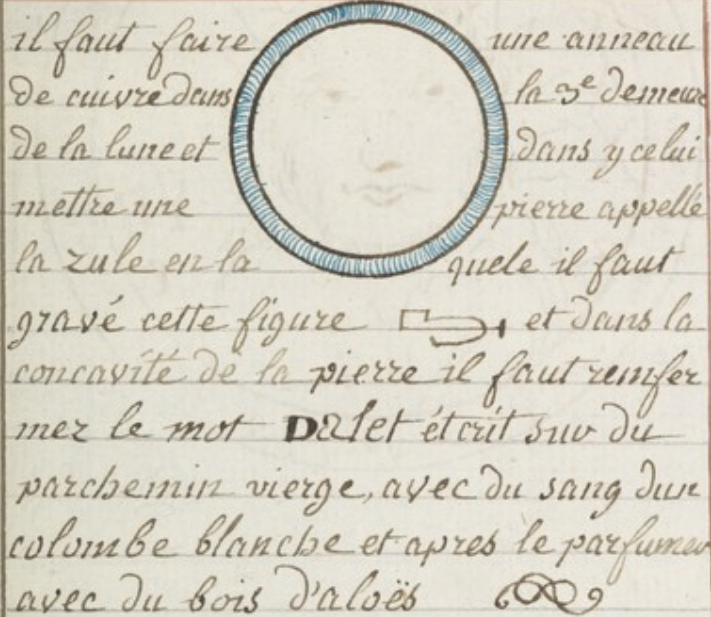 il faut faire une anneau
de cuivre dans la 3e demeure
de la lune et dans y celui
mettre une pierre appellé
la zule en la quele il faut
gravé cette figure et dans la
concavité de la pierre il faut renfer
mer le mot Dalet étcrit suv du
parchemin vierge, avec du sang dun
colombe blanche et apres le parfumer
avec du bois d'aloës